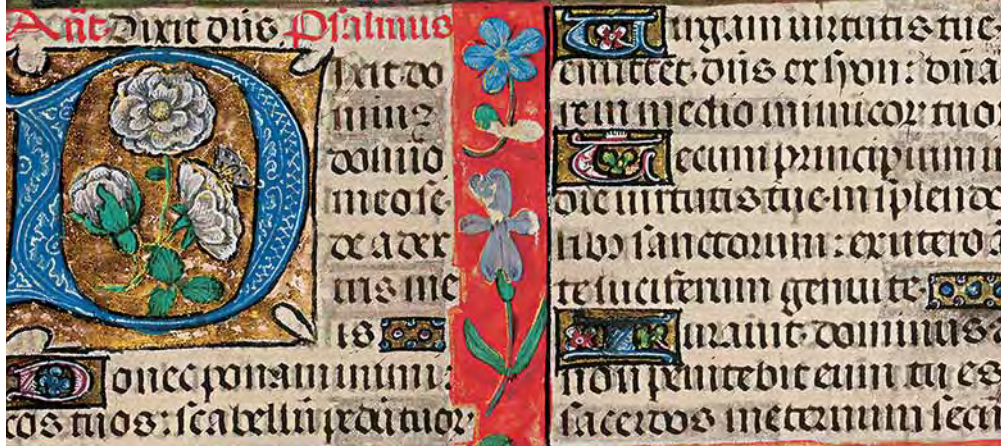 Añt Dixit dñs Psalmus
Dixit do
minus
domino
meo: se
de a dex
tris me
is
Donec ponam inimi:
cos tuos: scabellũ pedũ tuor
Uirgam uirtutis tue
emittet dñs ex syon: dña
re in medio inimicor tuor
Tecum principium in
die uirtutis tue in splendo
ribus sanctorum: ex utero a
te luciferum genui te
Iurauit dominus
non penitebit eum tu es
sacerdos in eternum secũ